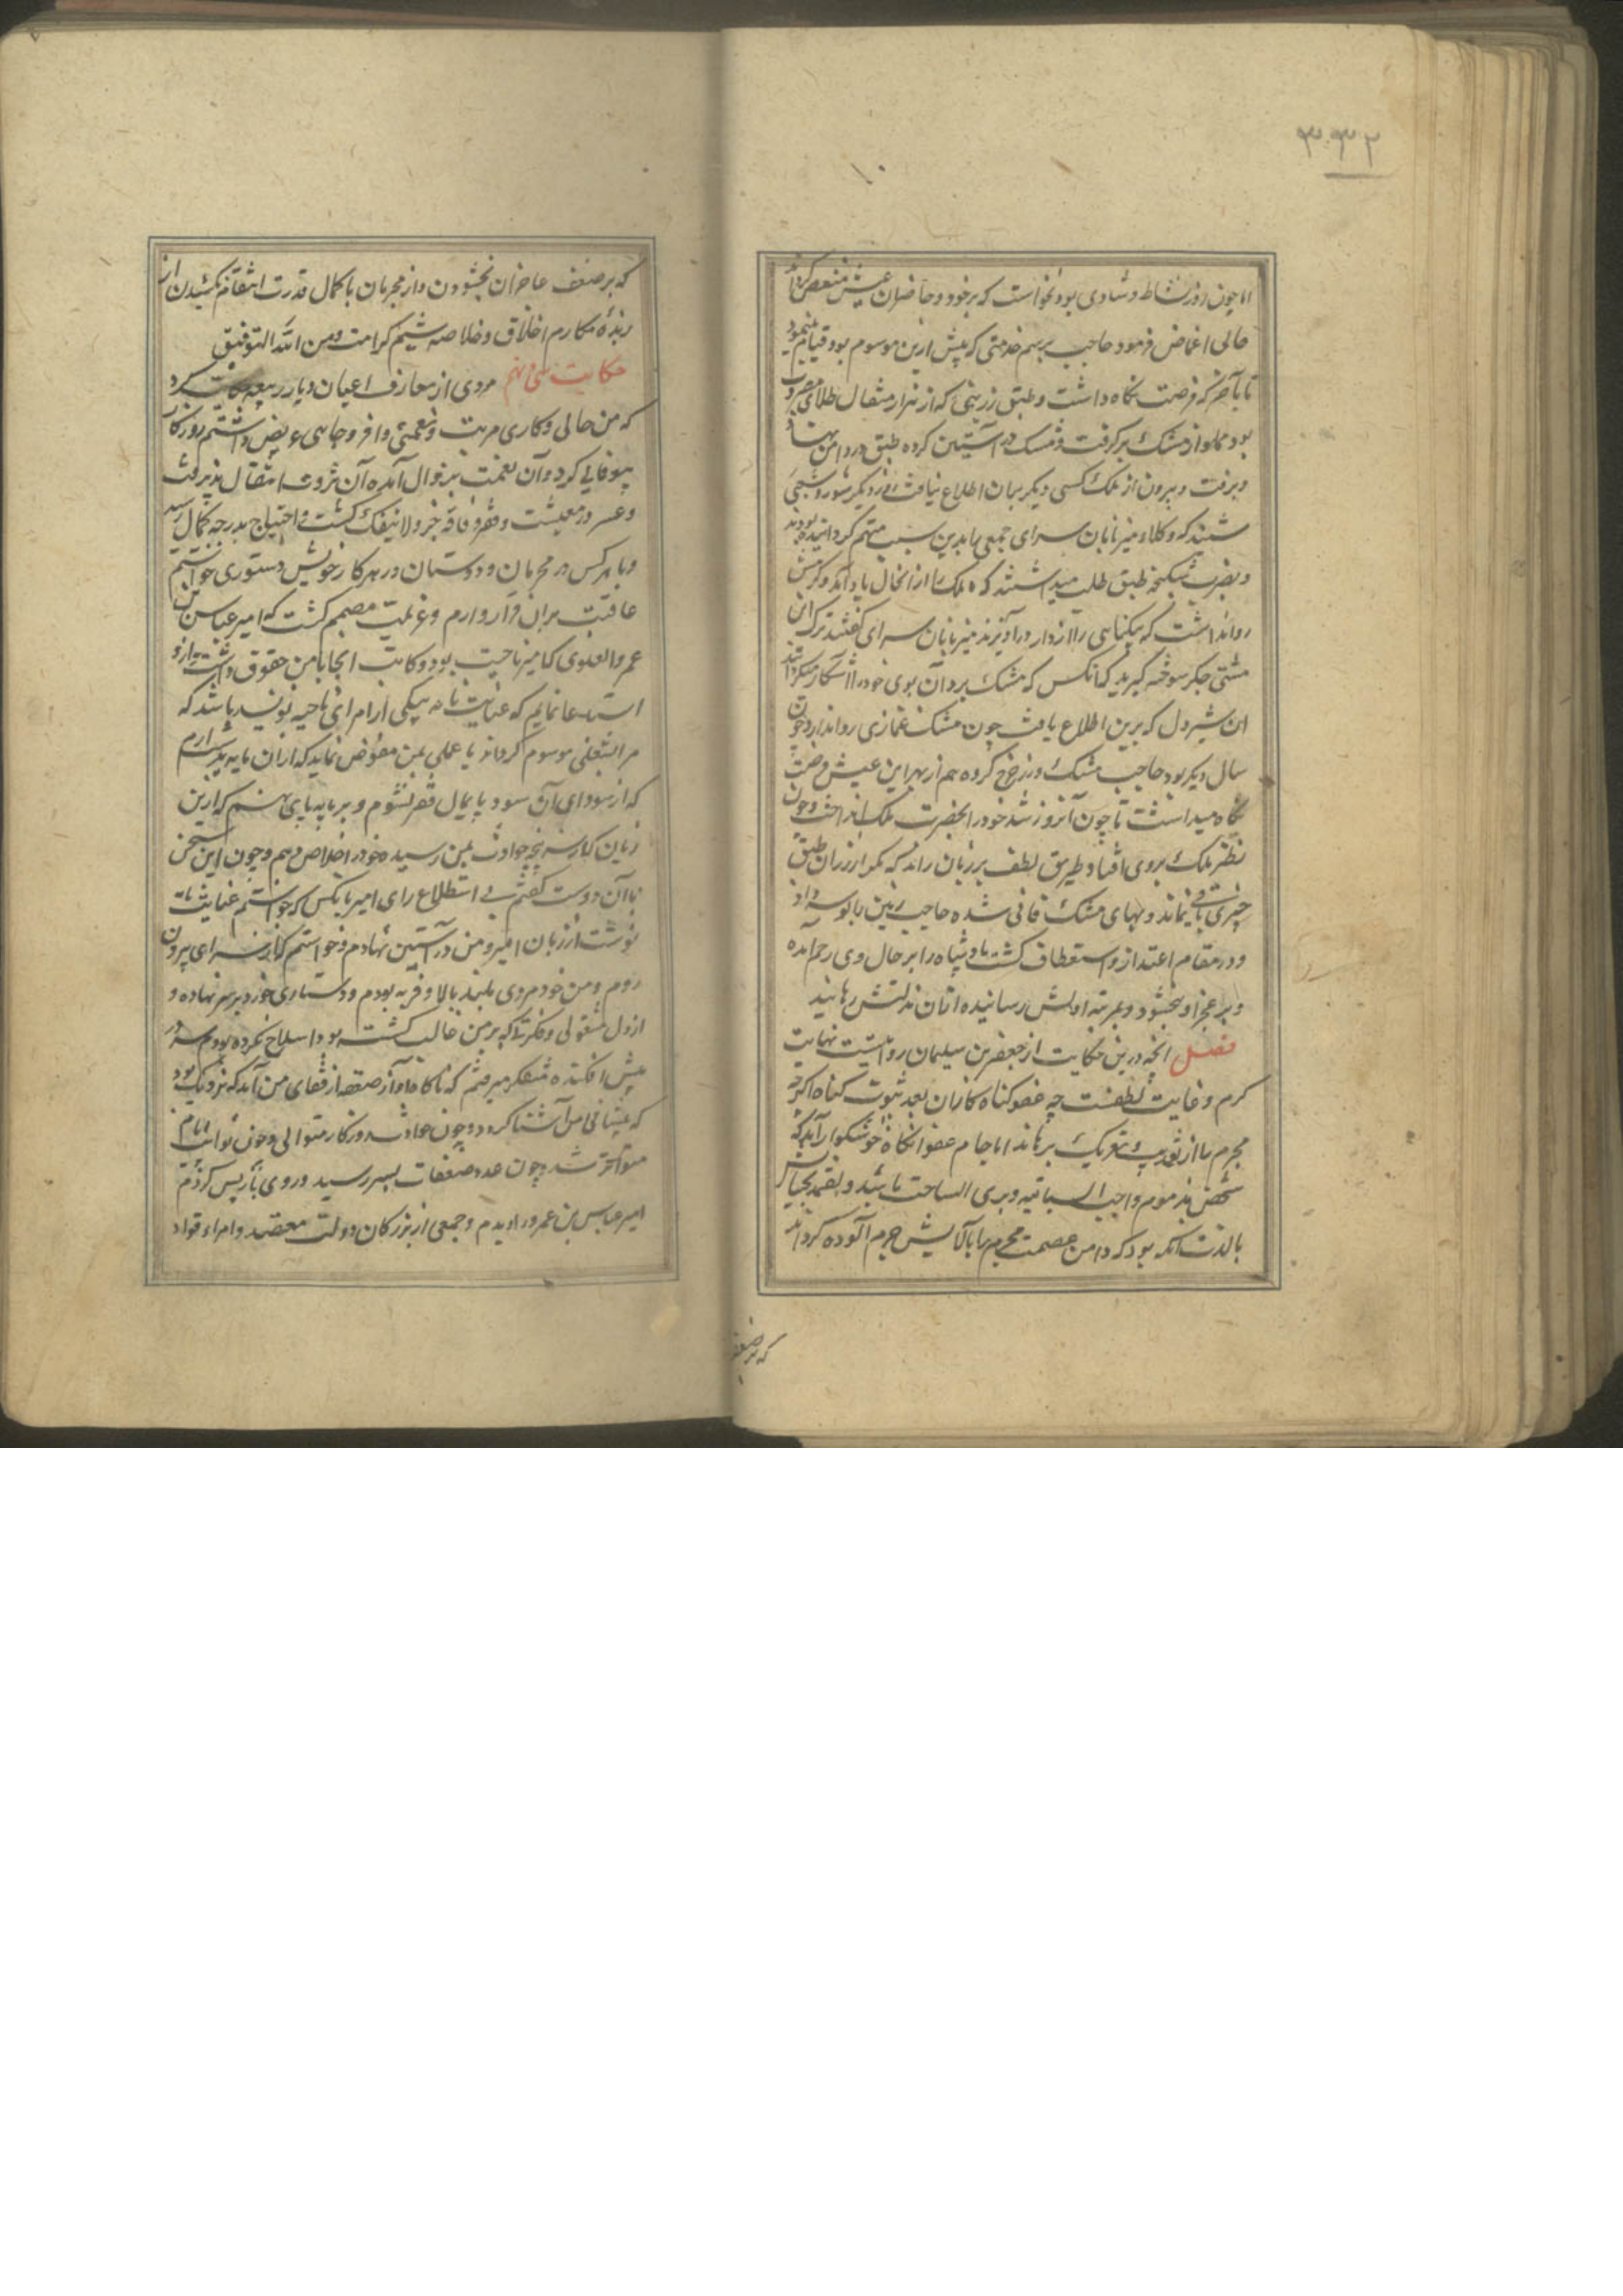 ۳۰۳۲
۱۰
اما چون روز نشاط و شادی بود نخواست که بر خود و حاضران عیش منغص گرداند
حالی اغماض فرمود حاجب برسم خدمتی که پیش ازین موسوم بود قیام مینمود
تا بآخر که فرصت نگاه داشت و طبق زرینی که از هزار مثقال طلای مضروب
بود مملو از مشک برگرفت و مشک در آستین کرده طبق در دامن نهاد
و برفت و بیرون از ملک کسی دیگر بران اطلاع نیافت روز دیگر
شنید که وکلاء میزبانان سرای جمعی را بدین سبب متهم گردانیده بودند
و بضرب شکنجه طبق طلب میداشتند که ملک را از انحال یاد آمد و کرمش
روا نداشت که بیگناهی را از دار در آویزند میزبانان سرای گفتند ترک این
مشتی جگر سوخته گیرید که آنکس که مشک برد آن بوی خود را آشکار نمیگرداند
این شیردل که برین اطلاع یافت چون مشک غمازی روا ندارد چون
سال دیگر بود حاجب مشک و زر خرج کرده هم از بهر این عیش فرصت
نگاه میداشت تا چون آنروز شد خود را بحضرت ملک انداخت و چون
نظر ملک بروی افتاد بطریق لطف بر زبان راند که مگر از زر آن طبق
چیزی باقی نماند و بهای مشک فانی شده حاجب زمین را بوسه داد
و در مقام اعتذار و استعطاف گشت پادشاه را بر حال وی رحم آمده
و بر عجز او ببخشود و بمرتبه اولش رسانیده ازان مذلتش رهانید
فصل آنچه درین حکایت از جعفر بن سلیمان روایتست نهایت
کرم و غایت لطفست چه عفو گناه کاران بعد ثبوت گناه اگرچه
مجرم را از تعریک برهاند اما جام عفو آنگاه خوشگوار آید که
شخص مذموم واجب السیاسه و بری الساحت باشد و لقمه بخشایش
بالذت آنگه بود که دامن عصمت مجرم را بآلایش جرم آلوده گرداند
که بر ضعف
که بر ضعف عاجزان بخشودن و از مجرمان با کمال قدرت انتقام نکشیدن از
زبده مکارم اخلاق و خلاصه شیم کرامت و من الله التوفیق
حکایت سی و نهم مردی از معارف اعیان دیار ربیعه حکایت کرد
که من حالی و کاری مرتب و نعمتی وافر و جاهی عریض داشتم روزگار
بیوفایی کرد و آن نعمت بزوال آمده آن ثروت انتقال پذیرفت
و عسر در معیشت و فقر و فاقه جزو لا ینفک گشت و احتیاج بدرجه کمال رسید
و با هر کس از محرمان و دوستان در هر کار خویش دستوری خواستم
عاقبت بران قرار دارم و عزیمت مصمم گشت که امیر عباس بن
عمرو الغنوی که امیر ناحیت بود و کاتب انجا با من حقوق داشت ازو
استدعا نمایم که عنایت نامه بیکی از امرای ناحیه نویسد باشد که
مرا بشغلی موسوم گرداند یا عملی بمن مفوض نماید که ازان مایه بدست آرم
که از سودای آن سود پایمال فقر نشوم و بر پایه پای نهم که ازین
زیان که از سر پنجه حوادث بمن رسیده خود را خلاص دهم و چون این سخن
با آن دوست گفتم بی استطلاع رای امیر بانکس که خواستم عنایت نامه
نوشت از زبان امیر و من در آستین نهادم و خواستم که از سرای بیرون
روم و من خود مردی بلند بالا و فربه بودم و دستاری خرد بر سر نهاده و
از دل مشغولی و فکرتی که بر من غالب گشته بود اصلاح نکرده بودم سر در
پیش افکنده متفکر میرفتم که ناگاه آواز صفعه از قفای من آمد که نزدیک بود
که پیشانی من آشنا کرد و چون حوادث روزگار متوالی و چون نوائب ایام
متواتر شد و چون عدد صفعات بسر رسید و روی باز پس کردم
امیر عباس بن عمرو را دیدم و جمعی از بزرگان دولت معتضد و امراء و قواد